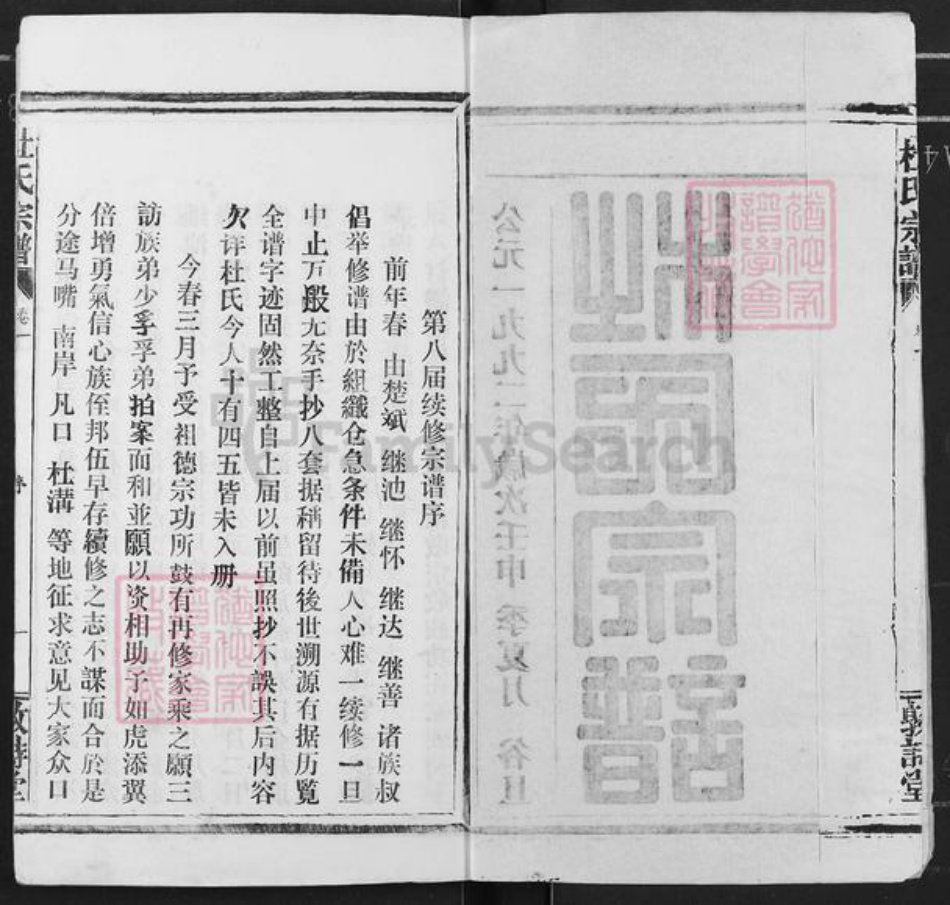 杜氏宗譜
卷一
敦詩堂
杜氏宗譜
公元一九九二年歲次壬申季夏月 谷旦
第八届续修宗谱序
前年春 由楚斌 继池 继怀 继达 继善 诸族叔
倡举修谱由於組織仓急条件未備人心难一续修一旦
中止万般无奈手抄八套据稱留待後世溯源有据历覽
全谱字迹固然工整自上届以前虽照抄不誤其后内容
欠详杜氏今人十有四五皆未入册
今春三月予受祖德宗功所鼓有再修家乘之願三
訪族弟少孚孚弟拍案而和並願以资相助予如虎添翼
倍增勇氣信心族侄邦伍早存續修之志不謀而合於是
分途马嘴 南岸 凡口 杜溝 等地征求意见大家众口
杜氏宗譜
卷一
序
一
敦詩堂
FamilySearch